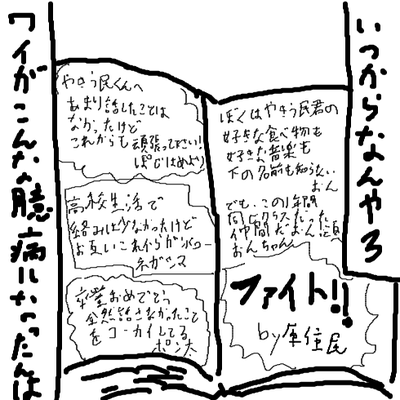 いつからなんやろ
ぼくはやきう民君の
好きな食べ物も
好きな音楽も
下の名前も知らない
おん
でも、この1年間
同じクラスだった
仲間だおん
おんちゃん
ファイト!!
by
住民
やきう民くんへ
あまり話したことは
なかったけど
これからも頑張って下さい!
ぽじはめより
高校生活で
絡みは少なかったけど
お互いこれからガンバロー
ネガシマ
卒業おめでとう
全然話さなかったこと
をコーカイしてる
ワイがこんな臆病になったんは